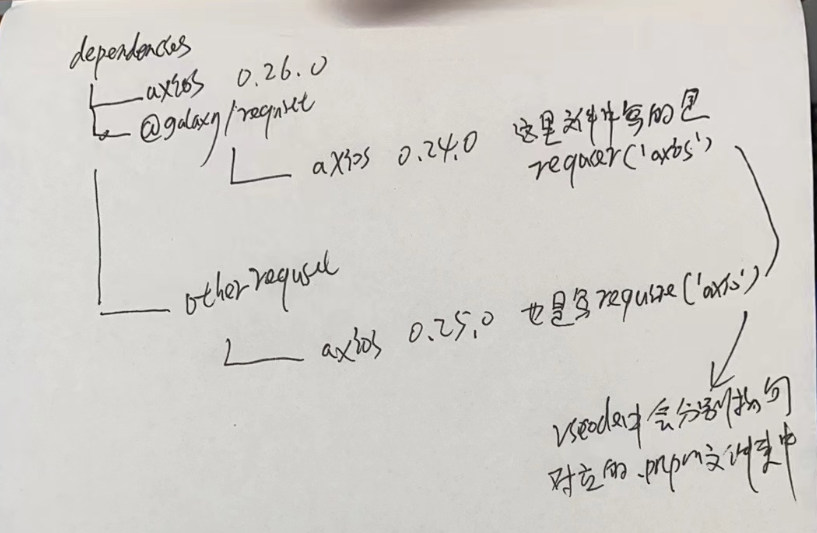 dependencies
axios 0.26.0
@galaxy/request
axios 0.24.0 这里文件中写的是
require('axios')
other request
axios 0.25.0 也是写require('axios')
vscode中会分别指向
对应的.pnpm文件夹中